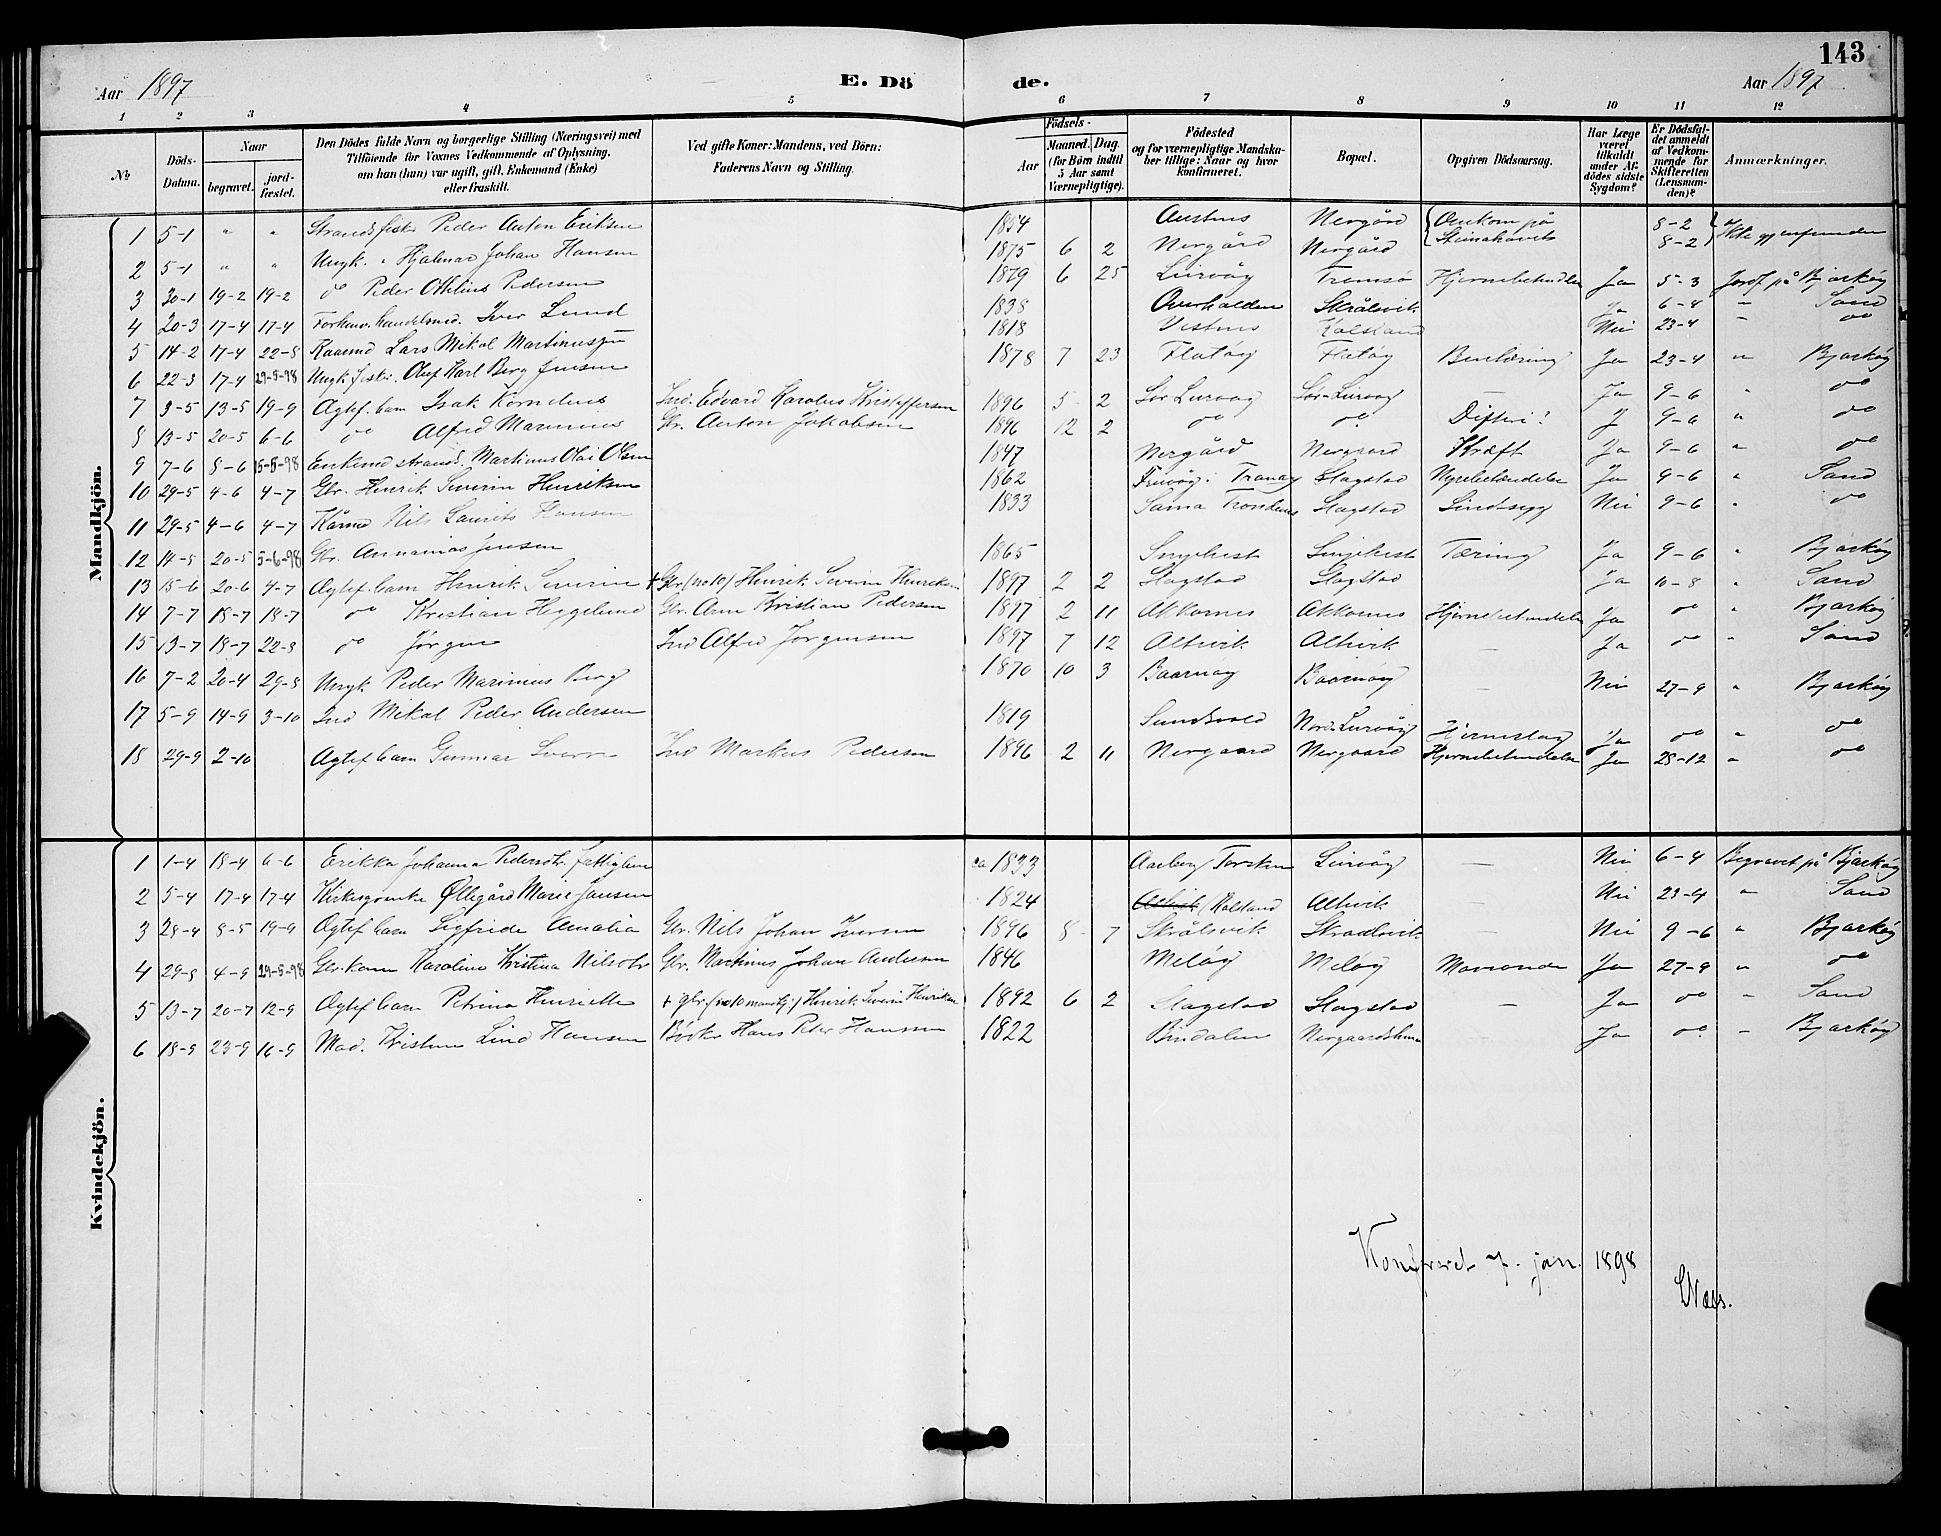 143
Aar 1897 E. Dö de. Aar 1897
1 2 3 4 5 6 7 8 9 10 11 12
№ Döds-Datum. Naar begravet. jordfæstet. Den Dödes fulde Navn og borgerlige Stilling (Næringsvei) med Tilföiende for Voxnes Vedkommende af Oplysning, om han (hun) var ugift, gift, Enkemand (Enke) eller fraskilt. Ved gifte Koner: Mandens, ved Börn: Faderens Navn og Stilling. Aar Födsels- Maaned. Dag. (for Börn indtil 5 Aar samt Værnepligtige). Födested og for værnepligtige Mandskaber tillige: Naar og hvor konfirmeret. Bopæl. Opgiven Dödsaarsag. Har Læge været tilkaldt under Afdödes sidste Sygdom? Er Dödsfaldet anmeldt af Vedkommende for Skifteretten (Lensmanden)? Anmærkninger.
Mandkjön.
1 5-1 " " Strandsfisk Peder Anton Eriksen 1854 Nergård Omkom på 8-2 Ikke gjenfunden
2 5-1 " " Ungk. Hjalmar Johan Hansen 1875 6 2 Nergård Nergård 8-2
3 30-1 19-2 19-2 do Peder Othilius Pedersen 1879 6 25 Lurvåg Tromsø Ja 5-3 Jordf på Bjarkøy
4 20-3 17-4 17-4 Forhenv. handelsmd. Iver Lund 1838 Overhalden Skrålsvik Ja 6-4 " Sand
5 14-2 17-4 22-8 Lars Mikal 1818 Nei 23-4 " do
6 22-3 17-4 29-5-98 Ungk. fisker. Oluf Karl Berg Jensen 1878 7 23 Flatøy Flatøy Ja 23-4 " Bjarkøy
7 3-5 13-5 19-9 Ægtef. barn Isak Kornelius Ind. Edvard Karolus Kristoffersen 1896 5 2 Sør Lurvåg Sør-Lurvåg Ja 9-6 " do
8 13-5 20-5 6-6 do Alfred Marinius Gbr. Anton Jakobsen 1896 12 2 do do Difteri! J 9-6 " do
9 7-6 8-6 15-5-98 Enkemd strands. Martinus Olai Olsen 1847 Nergård Nergaard Kræft Ja 9-6 " do
10 29-5 4-6 4-7 Gbr. Henrik Severin Henriksen 1862 Tranøy Slagstad Nyrebetændelse Ja 9-6 " Sand
11 29-5 4-6 4-7 Kårmd Nils Laurits Hansen 1833 Sama Trondenes Slagstad Nei 9-6 " do
12 14-5 20-5 5-6-98 Gbr. Annanias Jensen 1865 Tæring Ja 9-6 " Bjarkøy
13 15-6 20-6 4-7 Ægtef. barn Henrik Severin + Gbr. (no 10) Henrik Severin Henriksen 1897 2 2 Slagstad Slagstad Ja 10-8 " Sand
14 7-7 18-7 18-7 do Kristian Gbr. Kristian Pedersen 1897 2 11 Akkarnes Akkarnes Hjernebetændelse Ja do " Bjarkøy
15 13-7 18-7 22-8 do Jørgen Ind Alfred Jørgensen 1897 7 12 Altevik Altevik — Ja do " Sand
16 7-2 20-4 29-8 Ungk. Peder Marinius Berg 1870 10 3 — Nei 27-9 " Bjarkøy
17 5-9 14-9 3-10 Ind Mikal Peder Andersen 1819 Nord-Lurvåg Hjerneslag Ja do " do
18 29-9 2-10 Ægtef. barn Gunnar Ind Markus Pedersen 1896 2 11 Nergaard Nergaard Hjernebetændelse Ja 28-12 " do
Kvindekjön.
1 1-4 18-4 6-6 Erikka Johanna Pedersdtr. ca 1833 Torsken Lurvåg — Nei 6-4 Begravet på Bjarkøy
2 5-4 17-4 17-4 Øllegård Marie Jansen 1824 Altevik — Nei 23-4 " Sand
3 28-4 8-5 19-9 Ægtef barn Sigfride Amalia Gbr. Nils Johan Iversen 1896 8 7 Skrålsvik Skraalsvik — Nei 9-6 " Bjarkøy
4 29-8 4-9 29-5-98 Gbr. kone Karoline Kristina Nilsdtr Gbr. Martinus Johan Andersen 1846 Meløy Meløy Ja 27-9 " do
5 13-7 20-7 12-9 Ægtef barn Petrina Henriette + gbr (no 10 mandkj.) Henrik Severin Henriksen 1892 6 2 Slagstad Slagstad — Ja do " Sand
6 18-9 23-9 16-9 Mad. Lind Hansen Bødker Hans Peter Hansen 1822 Bindalen — Ja do " Bjarkøy
Konfereret 7. jan. 1898